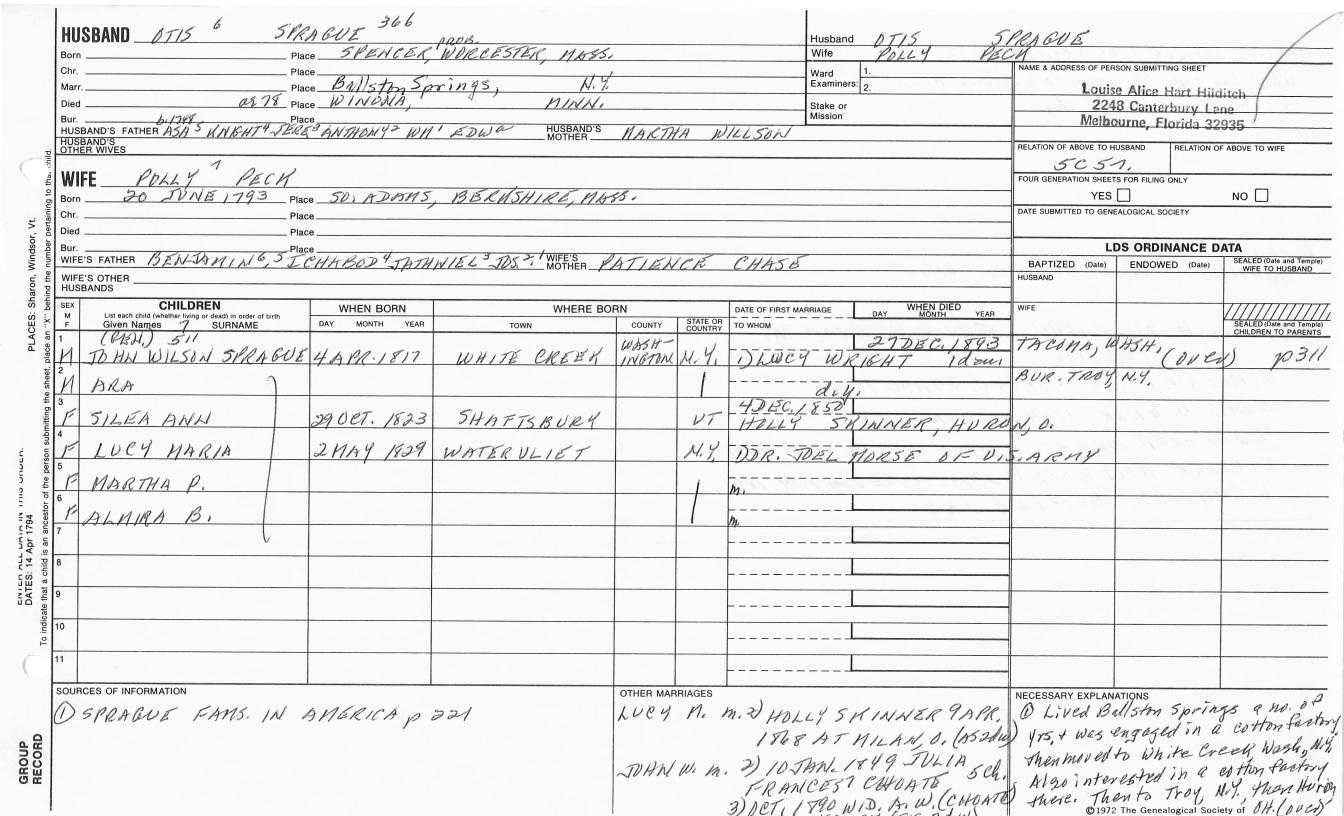 HUSBAND OTIS 6 SPRAGUE 366
PROB.
Born Place SPENCER, WORCESTER, MASS.
Chr. Place
Marr. Place Ballston Springs, N.Y.
Died ae 78 Place WINONA, MINN.
Bur. Place
b. 1748
HUSBAND'S FATHER ASA5 KNIGHT4 JERE3 ANTHONY2 WM1 EDWa HUSBAND'S MOTHER MARTHA WILLSON
HUSBAND'S OTHER WIVES
WIFE POLLY 7 PECK
Born 20 JUNE, 1793 Place SO. ADAMS, BERKSHIRE, MASS.
Chr. Place
Died Place
Bur. Place
WIFE'S FATHER BENJAMIN6,5 ICHABOD4 JATHNIEL3 JOS.2,1 WIFE'S MOTHER PATIENCE CHASE
WIFE'S OTHER HUSBANDS
Husband OTIS SPRAGUE
Wife POLLY PECK
Ward Examiners: 1.
2.
Stake or Mission
NAME & ADDRESS OF PERSON SUBMITTING SHEET
Louise Alice Hart Hilditch
2248 Canterbury Lane
Melbourne, Florida 32935
RELATION OF ABOVE TO HUSBAND RELATION OF ABOVE TO WIFE
5C 5r.
FOUR GENERATION SHEETS FOR FILING ONLY
YES NO
DATE SUBMITTED TO GENEALOGICAL SOCIETY
LDS ORDINANCE DATA
BAPTIZED (Date) ENDOWED (Date) SEALED (Date and Temple) WIFE TO HUSBAND
HUSBAND
WIFE
SEALED (Date and Temple) CHILDREN TO PARENTS
SEX M F CHILDREN WHEN BORN WHERE BORN DATE OF FIRST MARRIAGE WHEN DIED
List each child (whether living or dead) in order of birth
Given Names 7 SURNAME DAY MONTH YEAR TOWN COUNTY STATE OR COUNTRY TO WHOM DAY MONTH YEAR
1 (GEN.) 511 WASH- 27 DEC. 1893 TACOMA, WASH. (over) p311
M JOHN WILSON SPRAGUE 4 APR. 1817 WHITE CREEK INGTON N.Y. 1) LUCY WRIGHT 1 dau.
2 BUR. TROY, N.Y.
M ARA d.y.
3 4 DEC. 1850
F SILEA ANN 29 OCT. 1823 SHAFTSBURY VT HOLLY SKINNER, HURON, O.
4
F LUCY MARIA 2 MAY 1829 WATERVLIET N.Y. DR. JOEL MORSE OF U.S. ARMY
5
F MARTHA P. m.
6
F ALMIRA B. m.
7
8
9
10
11
SOURCES OF INFORMATION
① SPRAGUE FAMS. IN AMERICA p 221
OTHER MARRIAGES
LUCY M. m. 2) HOLLY SKINNER 9 APR.
1868 AT MILAN, O. (AS 2d w)
JOHN W. m. 2) 10 JAN. 1849 JULIA
FRANCES7 CHOATE 5 ch.
3) OCT. 1890 WID. A. W. (CHOATE)
NECESSARY EXPLANATIONS
① Lived Ballston Springs a no. of
yrs, + was engaged in a cotton factory
then moved to White Creek Wash, N.Y.
Also interested in a cotton factory
there. Then to Troy, N.Y., then Huron
OH. (over)
©1972 The Genealogical Society of
PLACES: Sharon, Windsor, Vt.
ENTER ALL DATA IN THIS ORDER:
DATES: 14 Apr 1794
To indicate that a child is an ancestor of the person submitting the sheet, place an "X" behind the number pertaining to that child.
GROUP RECORD